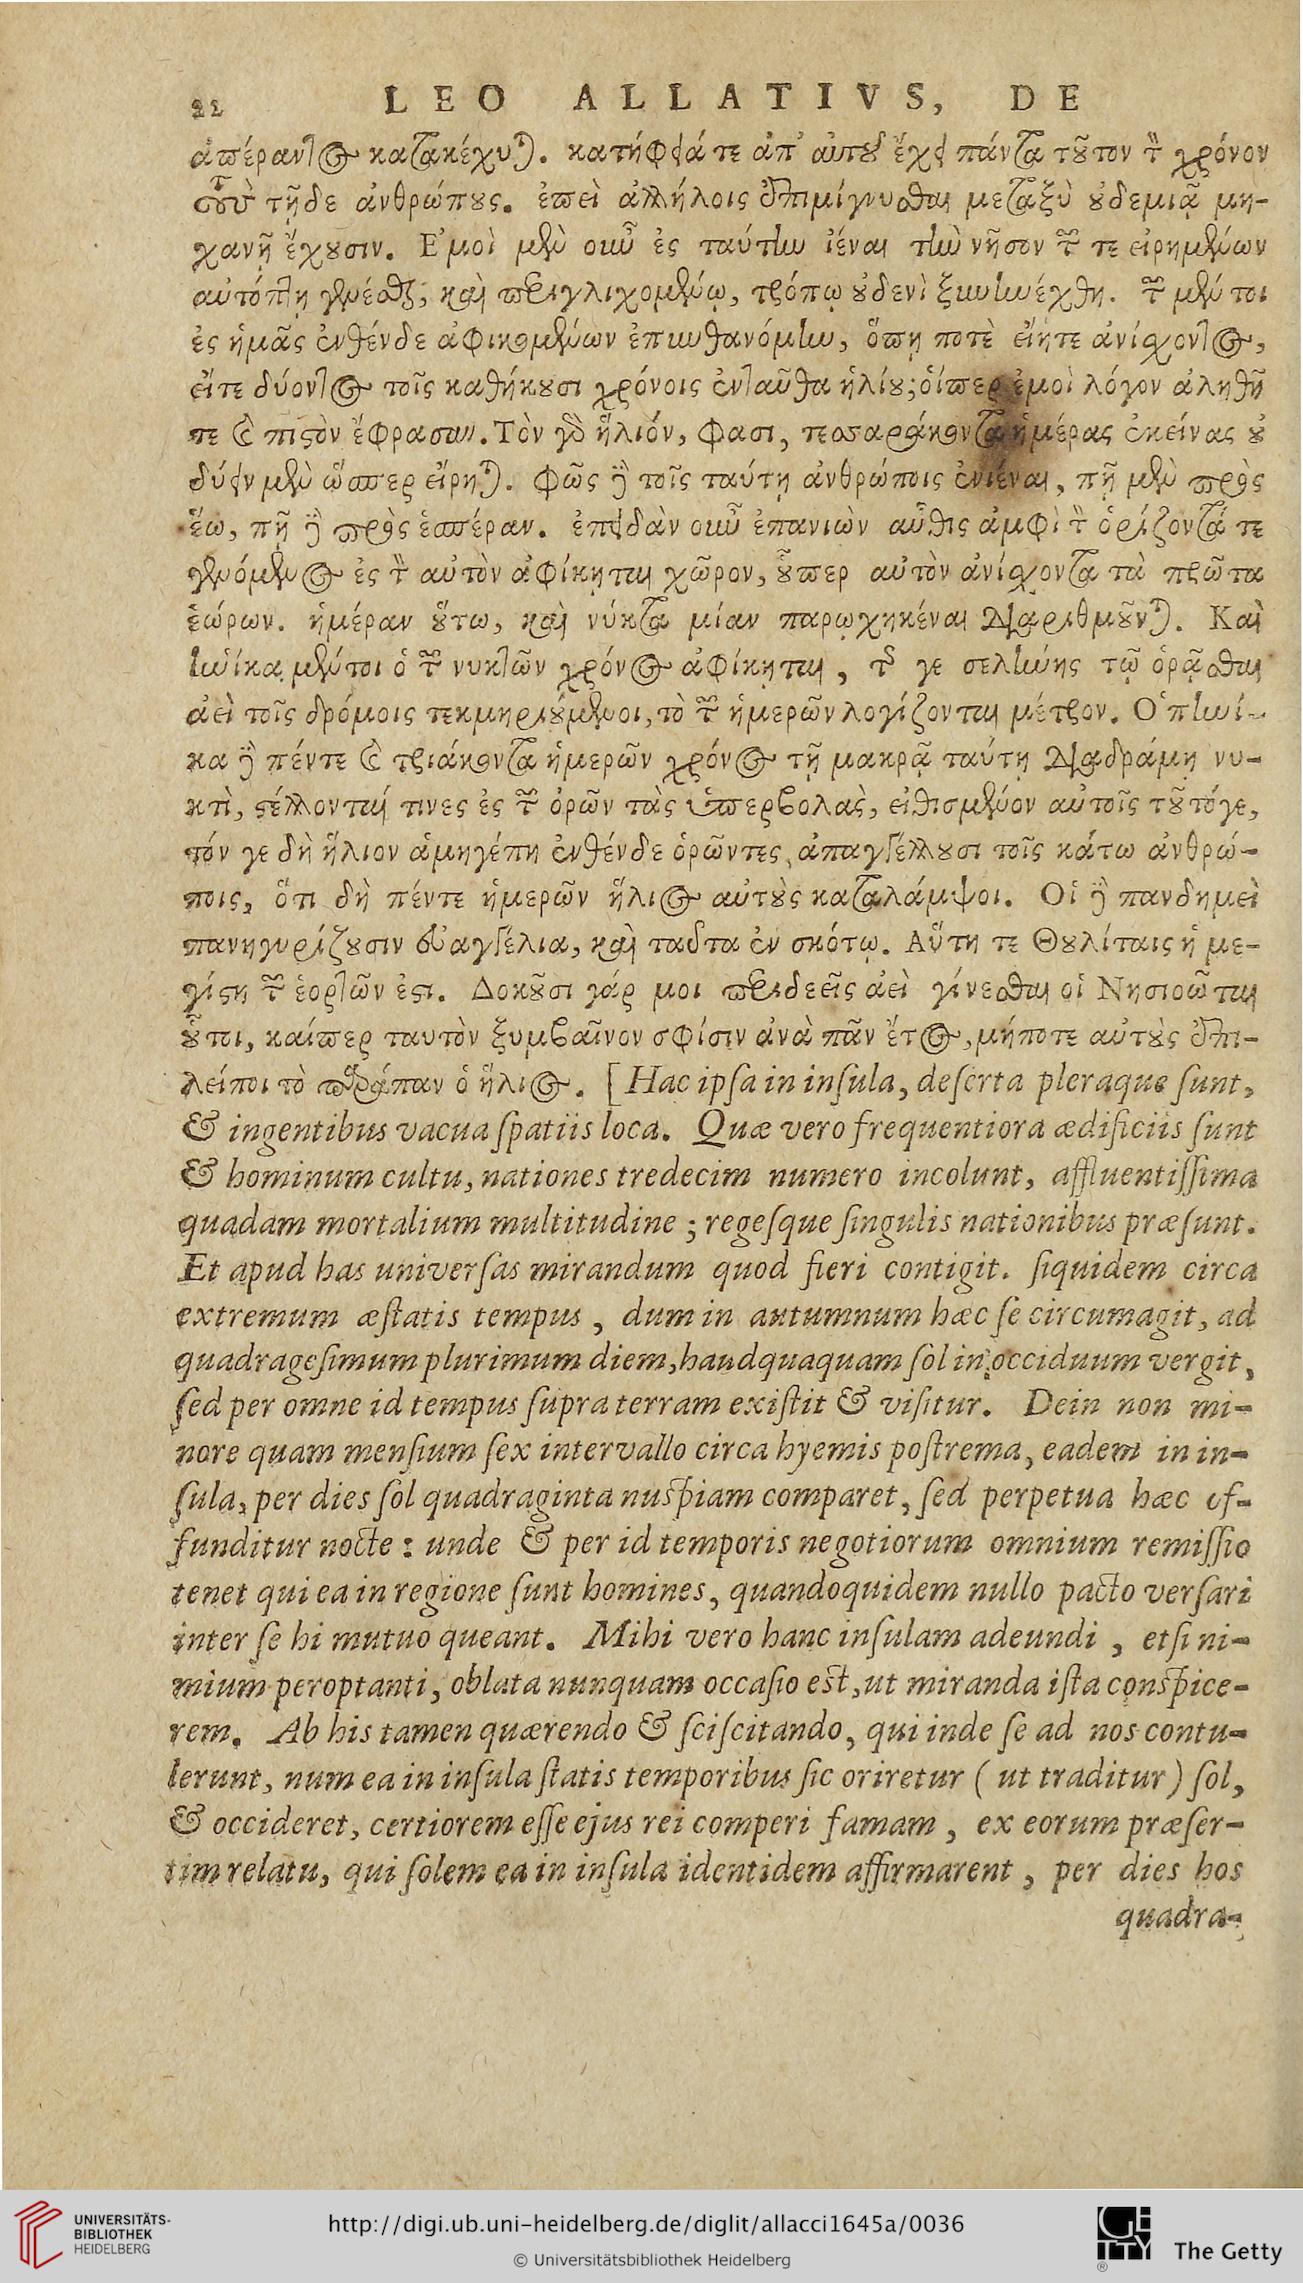 22 LEO ALLATIVS, DE
ἀπέραντος κατακέχυται. κατήφειά τε ἀπ' αὐτοῦ ἔχει πάντα τοῦτον τὸν χρόνον
τοὺς τῇδε ἀνθρώπους. ἐπεὶ ἀλλήλοις ἐπιμίγνυσθαι μεταξὺ οὐδεμιᾷ μη-
χανῇ ἔχουσιν. Ἐμοὶ μὲν οὖν ἐς ταύτην ἰέναι τὴν νῆσον τῶν τε εἰρημένων
αὐτόπτῃ γενέσθαι, καὶ περιγλιχομένῳ, τρόπῳ οὐδενὶ ξυνηνέχθη. τῶν μέν τοι
ἐς ἡμᾶς ἐνθένδε ἀφικομένων ἐπυνθανόμην, ὅπη ποτὲ εἴητε ἀνίσχοντος,
εἴτε δύοντος τοῖς καθήκουσι χρόνοις ἐνταῦθα ἡλίου; οἵπερ ἐμοὶ λόγον ἀληθῆ
τε καὶ πιστὸν ἔφρασαν. Τὸν γὰρ ἥλιόν, φασι, τεσσαράκοντα ἡμέρας ἐκείνας οὐ
δύειν μὲν ὥσπερ εἴρηται. Φῶς δὲ τοῖς ταύτῃ ἀνθρώποις ἐνιέναι, πῆ μὲν πρὸς
ἕω, πῆ δὲ πρὸς ἑσπέραν. ἐπειδὰν οὖν ἐπανιὼν αὖθις ἀμφὶ τὸν ὁρίζοντά τε
γενόμενος ἐς τὸν αὐτὸν ἀφίκηται χῶρον, οὗπερ αὐτὸν ἀνίσχοντα τὰ πρῶτα
ἑώρων. ἡμέραν οὕτω, καὶ νύκτα μίαν παρῳχηκέναι διαριθμοῦνται. Καὶ
ἡνίκα μέντοι ὁ τῶν νυκτῶν χρόνος ἀφίκηται, τῆς γε σελήνης τῷ ὁρᾷσθαι
ἀεὶ τοῖς δρόμοις τεκμηριούμενοι, τὸ τῶν ἡμερῶν λογίζονται μέτρον. Ὁπηνί-
κα δὲ πέντε καὶ τριάκοντα ἡμερῶν χρόνος τῇ μακρᾷ ταύτῃ διαδράμῃ νυ-
κτὶ, στέλλονταί τινες ἐς τῶν ὀρῶν τὰς ὑπερβολὰς, εἰθισμένον αὐτοῖς τοῦτό γε,
τόν γε δὴ ἥλιον ἁμηγέπη ἐνθένδε ὁρῶντες, ἀπαγγέλλουσι τοῖς κάτω ἀνθρώ-
ποις, ὅτι δὴ πέντε ἡμερῶν ἥλιος αὐτοὺς καταλάμψοι. Οἱ δὲ πανδημεὶ
πανηγυρίζουσιν εὐαγγέλια, καὶ ταῦτα ἐν σκότῳ. Αὕτη τε Θουλίταις ἡ με-
γίστη τῶν ἑορτῶν ἐστι. Δοκοῦσι γάρ μοι περιδεεῖς ἀεὶ γίνεσθαι οἱ Νησιῶται
οὗτοι, καίπερ ταυτὸν ξυμβαῖνον σφίσιν ἀνὰ πᾶν ἔτος, μήποτε αὐτοὺς ἐπι-
λείποι τὸ παράπαν ὁ ἥλιος. [Hac ipſa in inſula, deſerta pleraque ſunt,
& ingentibus vacua ſpatiis loca. Quæ vero frequentiora ædificiis ſunt
& hominum cultu, nationes tredecim numero incolunt, affluentiſſima
quadam mortalium multitudine ; regeſque ſingulis nationibus præſunt.
Et apud has univerſas mirandum quod fieri contigit. ſiquidem circa
extremum æſtatis tempus , dum in autumnum hæc ſe circumagit, ad
quadrageſimum plurimum diem, haudquaquam ſol in occiduum vergit,
ſed per omne id tempus ſupra terram exiſtit & viſitur. Dein non mi-
nore quam menſium ſex intervallo circa hyemis poſtrema, eadem in in-
ſula, per dies ſol quadraginta nuſpiam comparet, ſed perpetua hæc of-
funditur nocte : unde & per id temporis negotiorum omnium remiſſio
tenet qui ea in regione ſunt homines, quandoquidem nullo pacto verſari
inter ſe hi mutuo queant. Mihi vero hanc inſulam adeundi , etſi ni-
mium peroptanti, oblata nunquam occaſio eſt, ut miranda iſta conſpice-
rem. Ab his tamen quærendo & ſciſcitando, qui inde ſe ad nos contu-
lerunt, num ea in inſula ſtatis temporibus ſic oriretur ( ut traditur ) ſol,
& occideret, certiorem eſſe ejus rei comperi famam , ex eorum præſer-
tim relatu, qui ſolem ea in inſula identidem affirmarent , per dies hos
quadra-
UNIVERSITÄTS-
BIBLIOTHEK
HEIDELBERG
http://digi.ub.uni-heidelberg.de/diglit/allacci1645a/0036
© Universitätsbibliothek Heidelberg
GETTY
The Getty